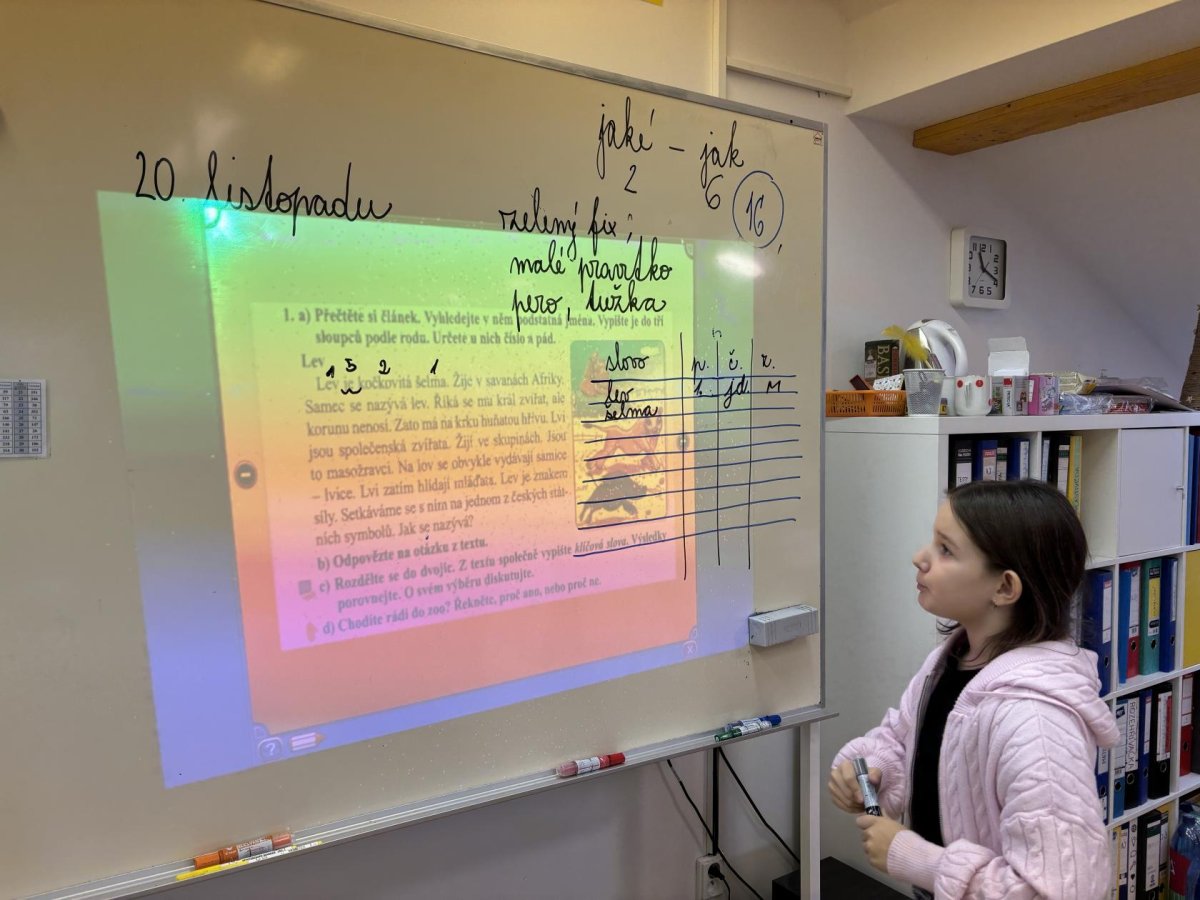 jaké - jak
2 6 16
20. listopadu
zelený fix,
malé pravítko
pero, tužka
1. a) Přečtěte si článek. Vyhledejte v něm podstatná jména. Vypište je do tří
sloupců podle rodu. Určete u nich číslo a pád.
Lev
1 5 2 1
Lev je kočkovitá šelma. Žije v savanách Afriky.
Samec se nazývá lev. Říká se mu král zvířat, ale
korunu nenosí. Zato má na krku huňatou hřívu. Lvi
jsou společenská zvířata. Žijí ve skupinách. Jsou
to masožravci. Na lov se obvykle vydávají samice
– lvice. Lvi zatím hlídají mláďata. Lev je znakem
síly. Setkáváme se s ním na jednom z českých stát-
ních symbolů. Jak se nazývá?
b) Odpovězte na otázku z textu.
c) Rozdělte se do dvojic. Z textu společně vypište klíčová slova. Výsledky
porovnejte. O svém výběru diskutujte.
d) Chodíte rádi do zoo? Řekněte, proč ano, nebo proč ne.
slovo p. č. r.
lev 1. jd. M
šelma
?
x